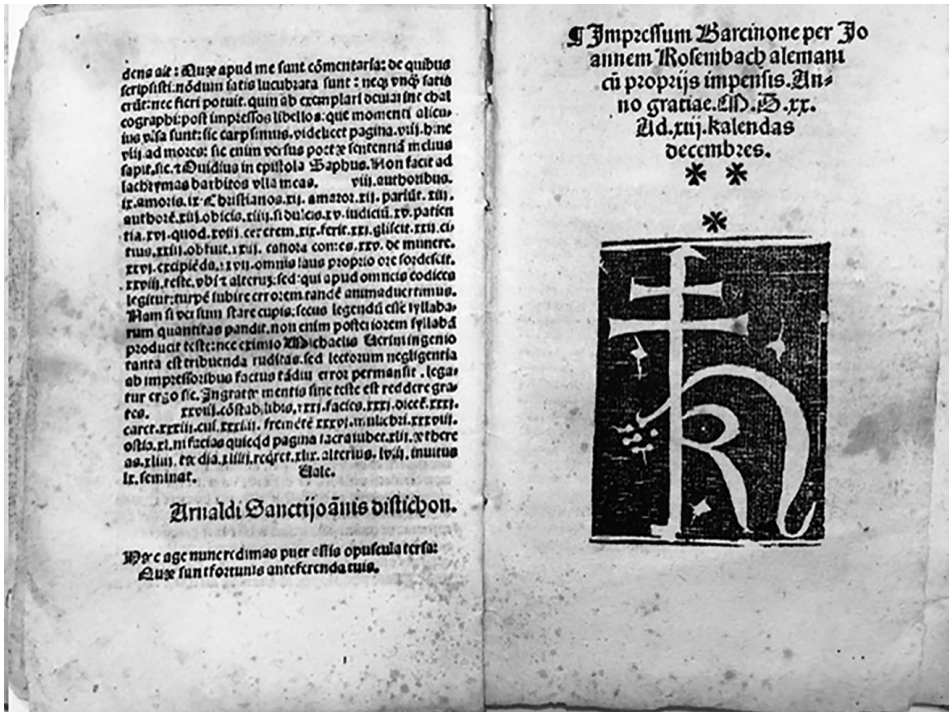 dens ait: Quæ apud me sunt cõmentaria: de quibus
scripsisti: nõdum satis lucubrata sunt: neqʒ vnqʒ̃ satis
erũt: nec fieri potuit. quin ab exemplari oculai sine chal
cographi: post impressos libellos: que momenti alicu-
ius visa sunt: sic carpsimus. videlicet pagina. viii. bene
viii ad mores: sic enim versus poetæ sententiã melius
sapit. sic. & Ouidius in epistola Saphus. Non facit ad
lachrymas barbitos vlla meas. viii. authoribus.
ix. amoris. ix Christianos. xij. amator. xij. pariũt. xiij.
authorẽ. xiij. obicis. xiiij. si dulcis. xv. iudiciũ. xv. patien
tia. xvj. quod. xviij. cererem. xix. ferit. xxj. gliscit. xxij. ci
tius. xxiij. obfuit. canora xxv. de munere.
xxvj. omnis laus proprio ore sordescit.
xxviij. teste. vbi & alterũ: sed: qui apud omneis codices
legitur: turpẽ subire errorem. tandẽ animaduertimus.
Nam si versum stare cupis: secus legendũ esse syllaba-
rum quantitas pandit. non enim posteriorem syllabã
producit teste: nec eximio Michaelis Verini ingenio
tanta est tribuenda ruditas. sed lectorum negligentia
ab impressoribus factus tãdiu error permansit. lega-
tur ergo sic. Ingratæ mentis sine teste est reddere gra
tes. xxviij. cõstab, libis, xxxj. facies. xxxj. dicet. xxxj.
caret. xxxiij. cui. fremẽte xxxvj. mulicbri. xxxviij.
ostia. xl. ni facias quicqd pagina sacra iubet. xlij. æthere
as. xliij. ex dia. xliiij. reqret. xlix. alterius. lviij. inuitus
lx. seminat. Vale.
Arnaldi Sanctijoãnis distichon.
Hæc age nunc redimas puer estis opuscula tersa:
Quæ sunt fortunis anteferenda tuis.
¶ Impressum Barcinone per Jo
annem Rosembach alemanũ
cũ proprijs impensis. An-
no gratiae. M. D. xx.
Ad. xiij. kalendas
decembres.
R